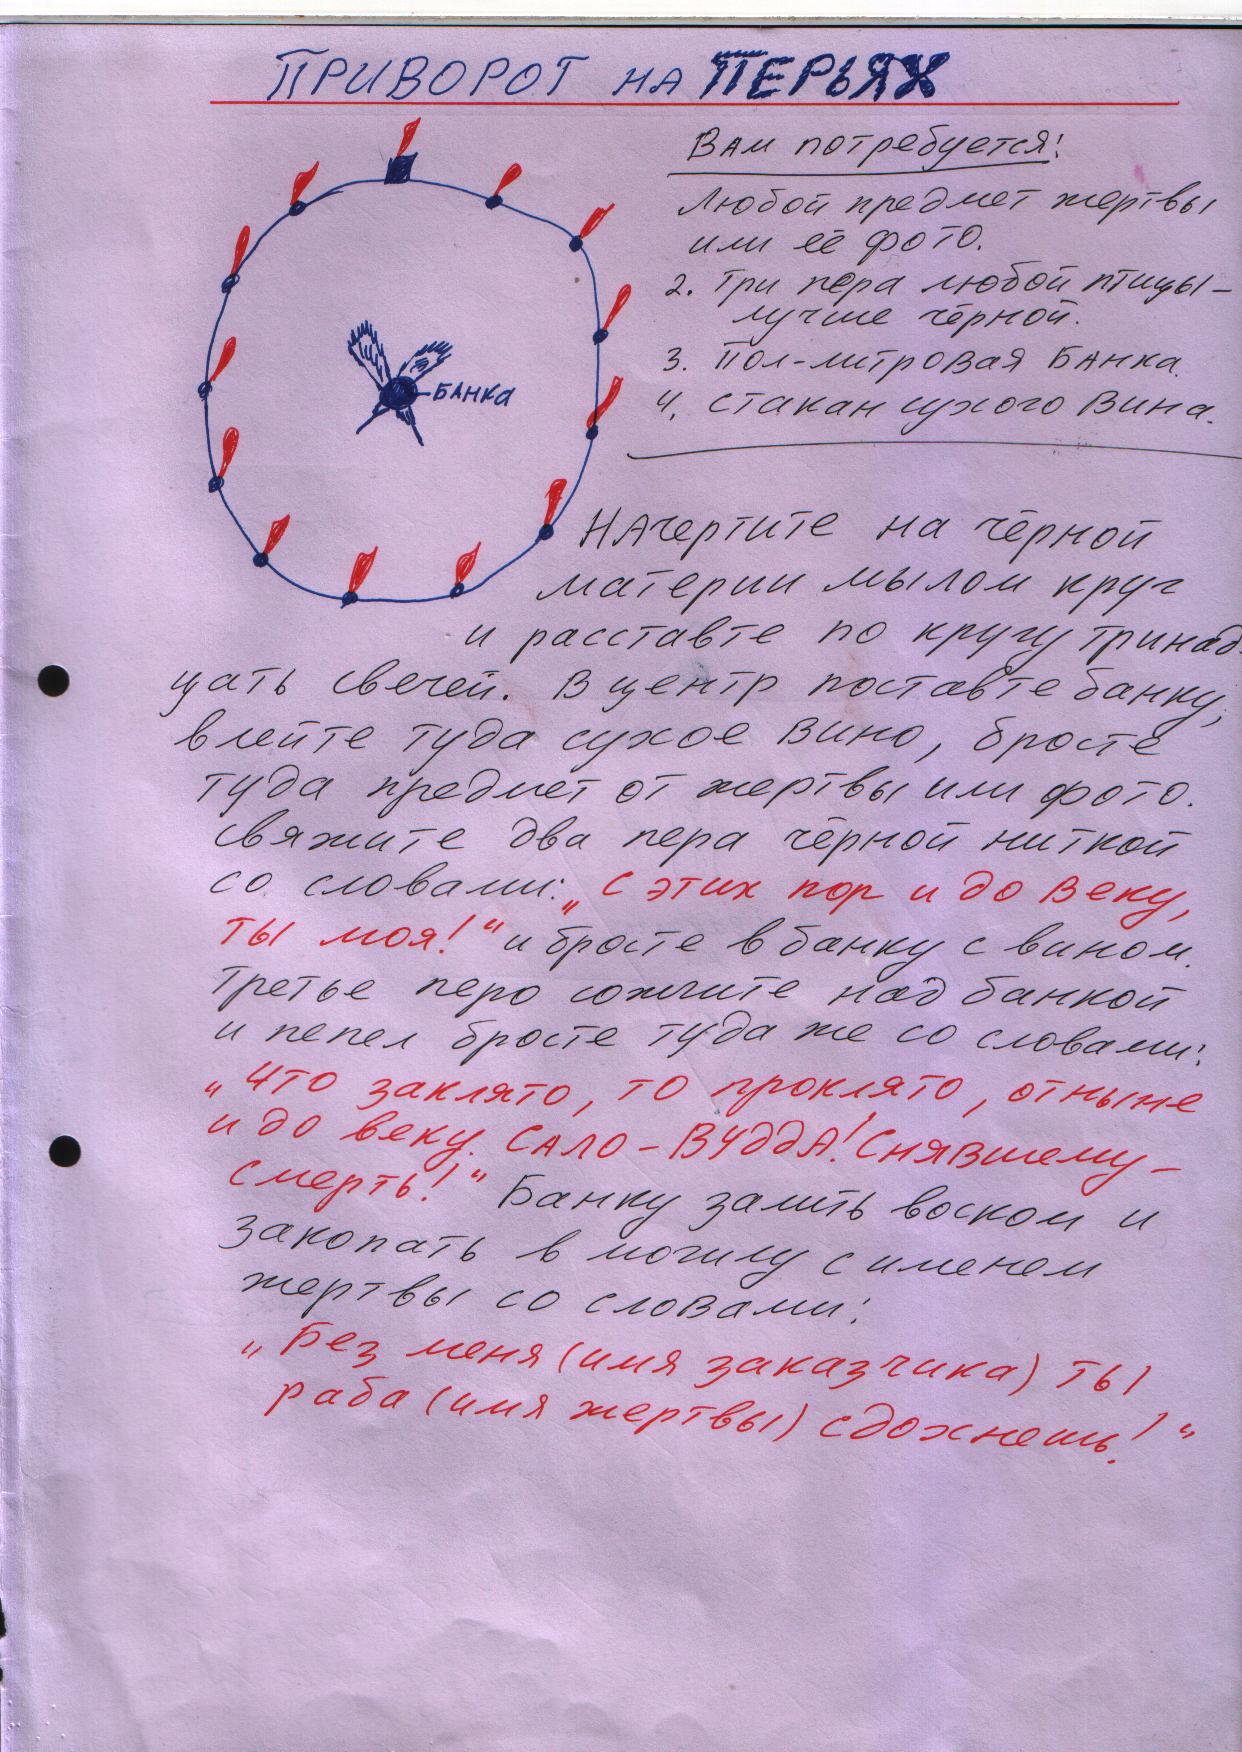 ПРИВОРОТ НА ПЕРЬЯХ
Вам потребуется!
Любой предмет жертвы
или её фото.
2. Три пера любой птицы –
лучше чёрной.
3. Пол-литровая банка.
4. стакан сухого вина.
БАНКА
Начертите на чёрной
материи мылом круг
и расставте по кругу тринад-
цать свечей. В центр поставте банку,
влейте туда сухое вино, бросте
туда предмет от жертвы или фото.
Свяжите два пера чёрной ниткой
со словами: „С этих пор и до веку,
ты моя!“ и бросте в банку с вином.
Третье перо сожгите над банкой
и пепел бросте туда же со словами:
„Что заклято, то проклято, отныне
и до веку. САЛО-ВУДДА! Снявшему –
смерть!“ Банку залить воском и
закопать в могилу с именем
жертвы со словами:
„Без меня (имя заказчика) ты
раба (имя жертвы) сдохнешь!“